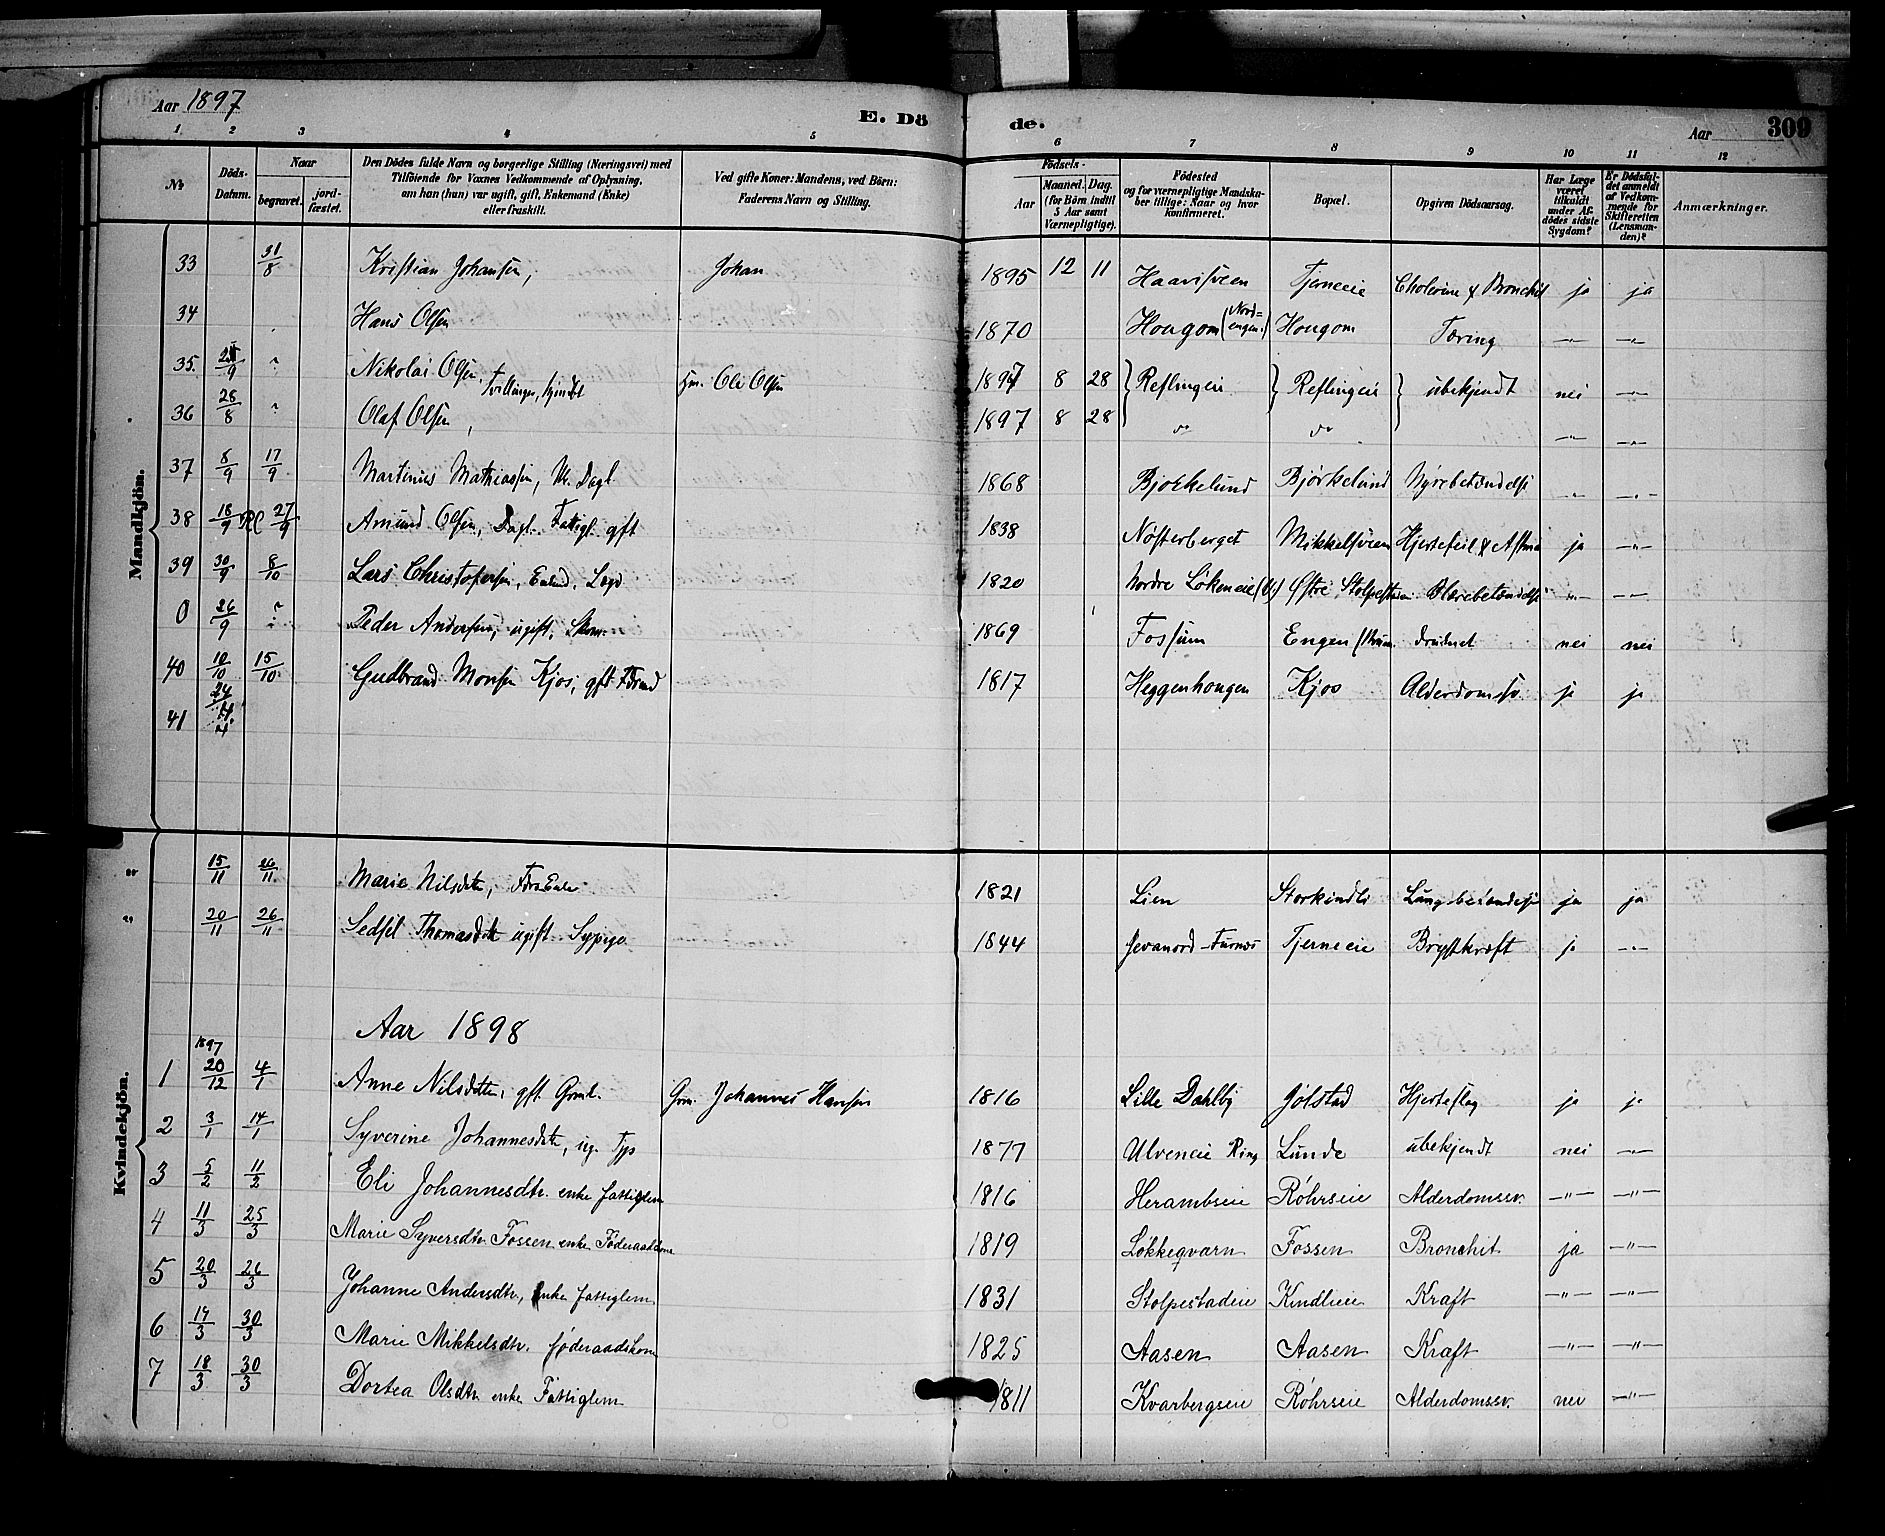 Aar 1897
E. Dö
de.
Aar
309
1 2 3 4 5 6 7 8 9 10 11 12
No
Döds-Datum.
Naar
begravet.
jord-fæstet.
Den Dödes fulde Navn og borgerlige Stilling (Næringsvei) med
Tilföiende for Voxnes Vedkommende af Oplysning,
om han (hun) var ugift, gift, Enkemand (Enke)
eller fraskilt.
Ved gifte Koner: Mandens, ved Börn:
Faderens Navn og Stilling.
Födsels-
Aar
Maaned. Dag.
(for Börn indtil
5 Aar samt
Værnepligtige).
Födested
og for værnepligtige Mandska-
ber tillige: Naar og hvor
konfirmeret.
Bopæl.
Opgiven Dödsaarsag.
Har Læge
været
tilkaldt
under Af-
dødes sidste
Sygdom?
Er Dödsfal-
det anmeldt
af Vedkom-
mende for
Skifteretten
(Lensman-
den)?
Anmærkninger.
Mandkjön.
33 31/8 Kristian Johansen, Johan 1895 12 11 Haavisveen Tjerneeie Cholerine & Bronchit ja ja
34 Hans Olsen 1870 Hougom (Nord=engen) Hougom Tæring -"- -"-
35. /9 ? Nikolai Olsen, Tvillinger Gm. Ole Olsen 1897 8 28 Reflingeie Reflingeie ubekjendt nei -"-
36 28/8 ? Olaf Olsen, 1897 8 28 do do -"- -"-
37 8/9 17/9 Martinius Mathiassen, Dagl. 1868 Bjørkelund Bjørkelund Nyrebetændelse -"- -"-
38 18/9 27/9 Amund Olsen, Dagl. Fattigl. gift 1838 Nøsterberget Mikkelsveen Hjertefeil & Astma ja -"-
39 30/9 8/10 Lars Christofersen, Enkd. Lægd 1820 Nordre Løkeneie Østre Blærebetændelse -"- -"-
0 26/9 ? Peder Andersen, ugift, Skom. 1869 Fossum Engen druknet nei nei
40 10/10 15/10 Gudbrand Monsen Kjos, gift 1817 Heggenhougen Kjos Alderdomssv. ja ja
41 24/
Kvindekjön.
" 15/11 /11 Marie Nilsdtr, 1821 Lien Storkindli Lungebetændelse ja ja
" 20/11 26/11 Sedsel Thomasdtr ugift Sypige 1844 Furnæs Tjerneeie Brystkræft ja -"-
Aar 1898
1897
1 20/12 4/1 Anne Nilsdatter, gift Grmd. Grm. Johannes Hansen 1816 Lille Dahlby Gjølstad Hjerteslag ja ja
2 3/1 14/1 Syverine Johannesdtr, ug. 1877 Ulveneie Ring Lunde ubekjendt nei -"-
3 5/2 11/2 Eli Johannesdtr. enke fattiglem 1816 Herambseie Røhrseie Alderdomssv. -"- -"-
4 11/3 25/3 Marie Syversdtr. Fossen enke Føderaadskone 1819 Løkkeqvarn Fossen Bronchit ja -"-
5 20/3 26/3 Johanne Andersdtr, enke fattiglem 1831 Stolpestadeie Kindlieie Kraft -"- -"-
6 14/3 30/3 Marie Mikkelsdtr. føderaadskone 1825 Aasen Aasen Kraft -"- -"-
7 18/3 30/3 Dortea Olsdtr enke Fattiglem 1811 Kvarbergseie Røhrseie Alderdomssv. nei -"-